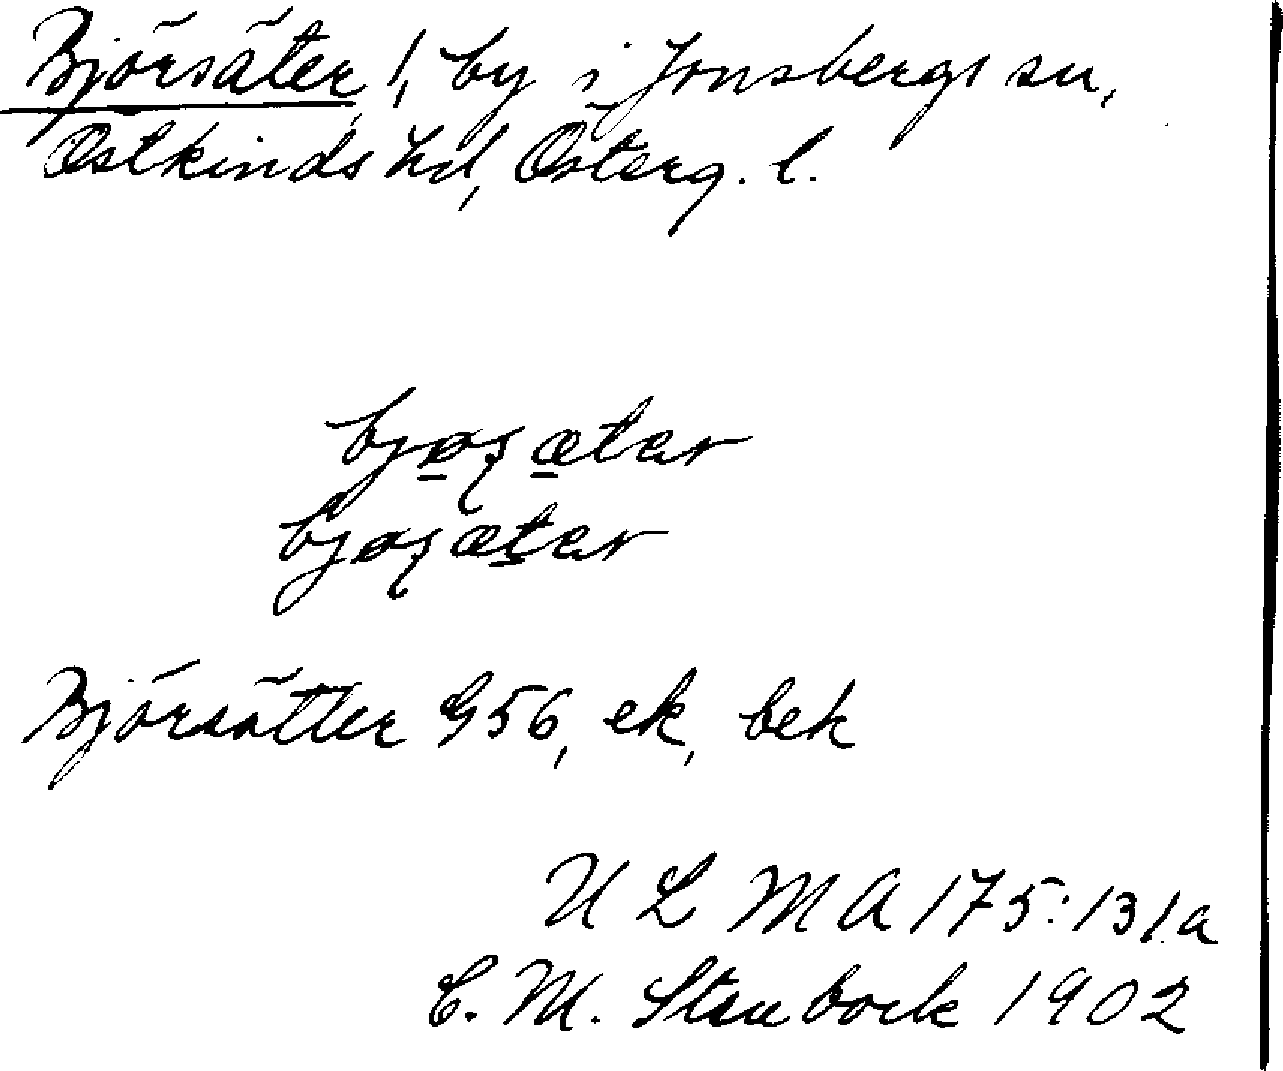 Björsäter !, by i Jonsbergs sn,
Östkinds hd, Österg. l.
bjøʂætar
bjøʂætar
Björsätter G56, ek, bek
U L M A 175:131a
C. M. Stenbock 1902